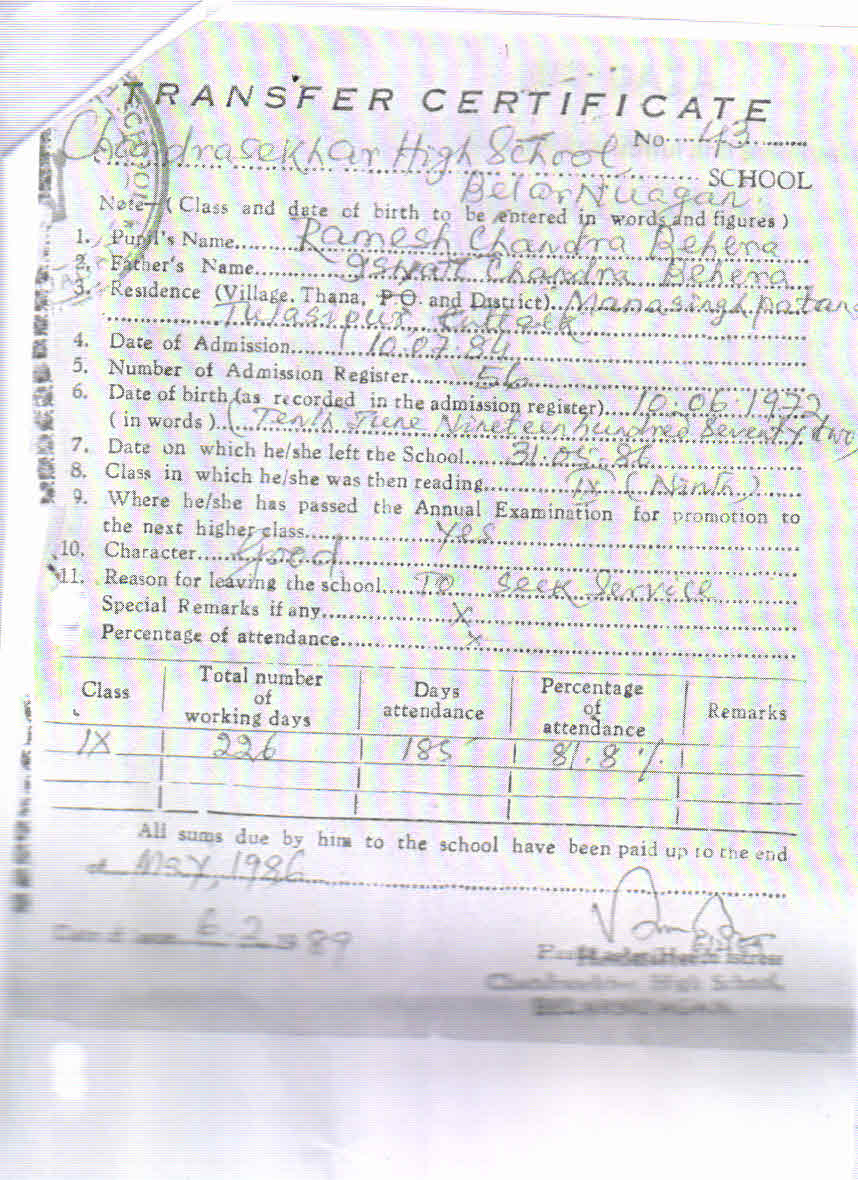 TRANSFER CERTIFICATE
No. 43
Chandrasekhar High School SCHOOL
Note—( Class and date of birth to be entered in words and figures )
1. Pupil's Name Ramesh Chandra Behera
2. Father's Name Chandra Behera
3. Residence (Village, Thana, P.O. and District) Manasinghpatana
Tulasipur Cuttack
4. Date of Admission 10.07.84
5. Number of Admission Register 56
6. Date of birth (as recorded in the admission register) 10.06.1972
( in words ) (Tenth June Nineteen hundred Seventy two)
7. Date on which he/she left the School 31.05.86
8. Class in which he/she was then reading IX (Ninth)
9. Where he/she has passed the Annual Examination for promotion to
the next higher class Yes
10. Character Good
11. Reason for leaving the school To seek Service
Special Remarks if any X
Percentage of attendance X
Class Total number of working days Days attendance Percentage of attendance Remarks
IX 226 185 81.8 %
All sums due by him to the school have been paid up to the end
of May, 1986
6.2 89
High School